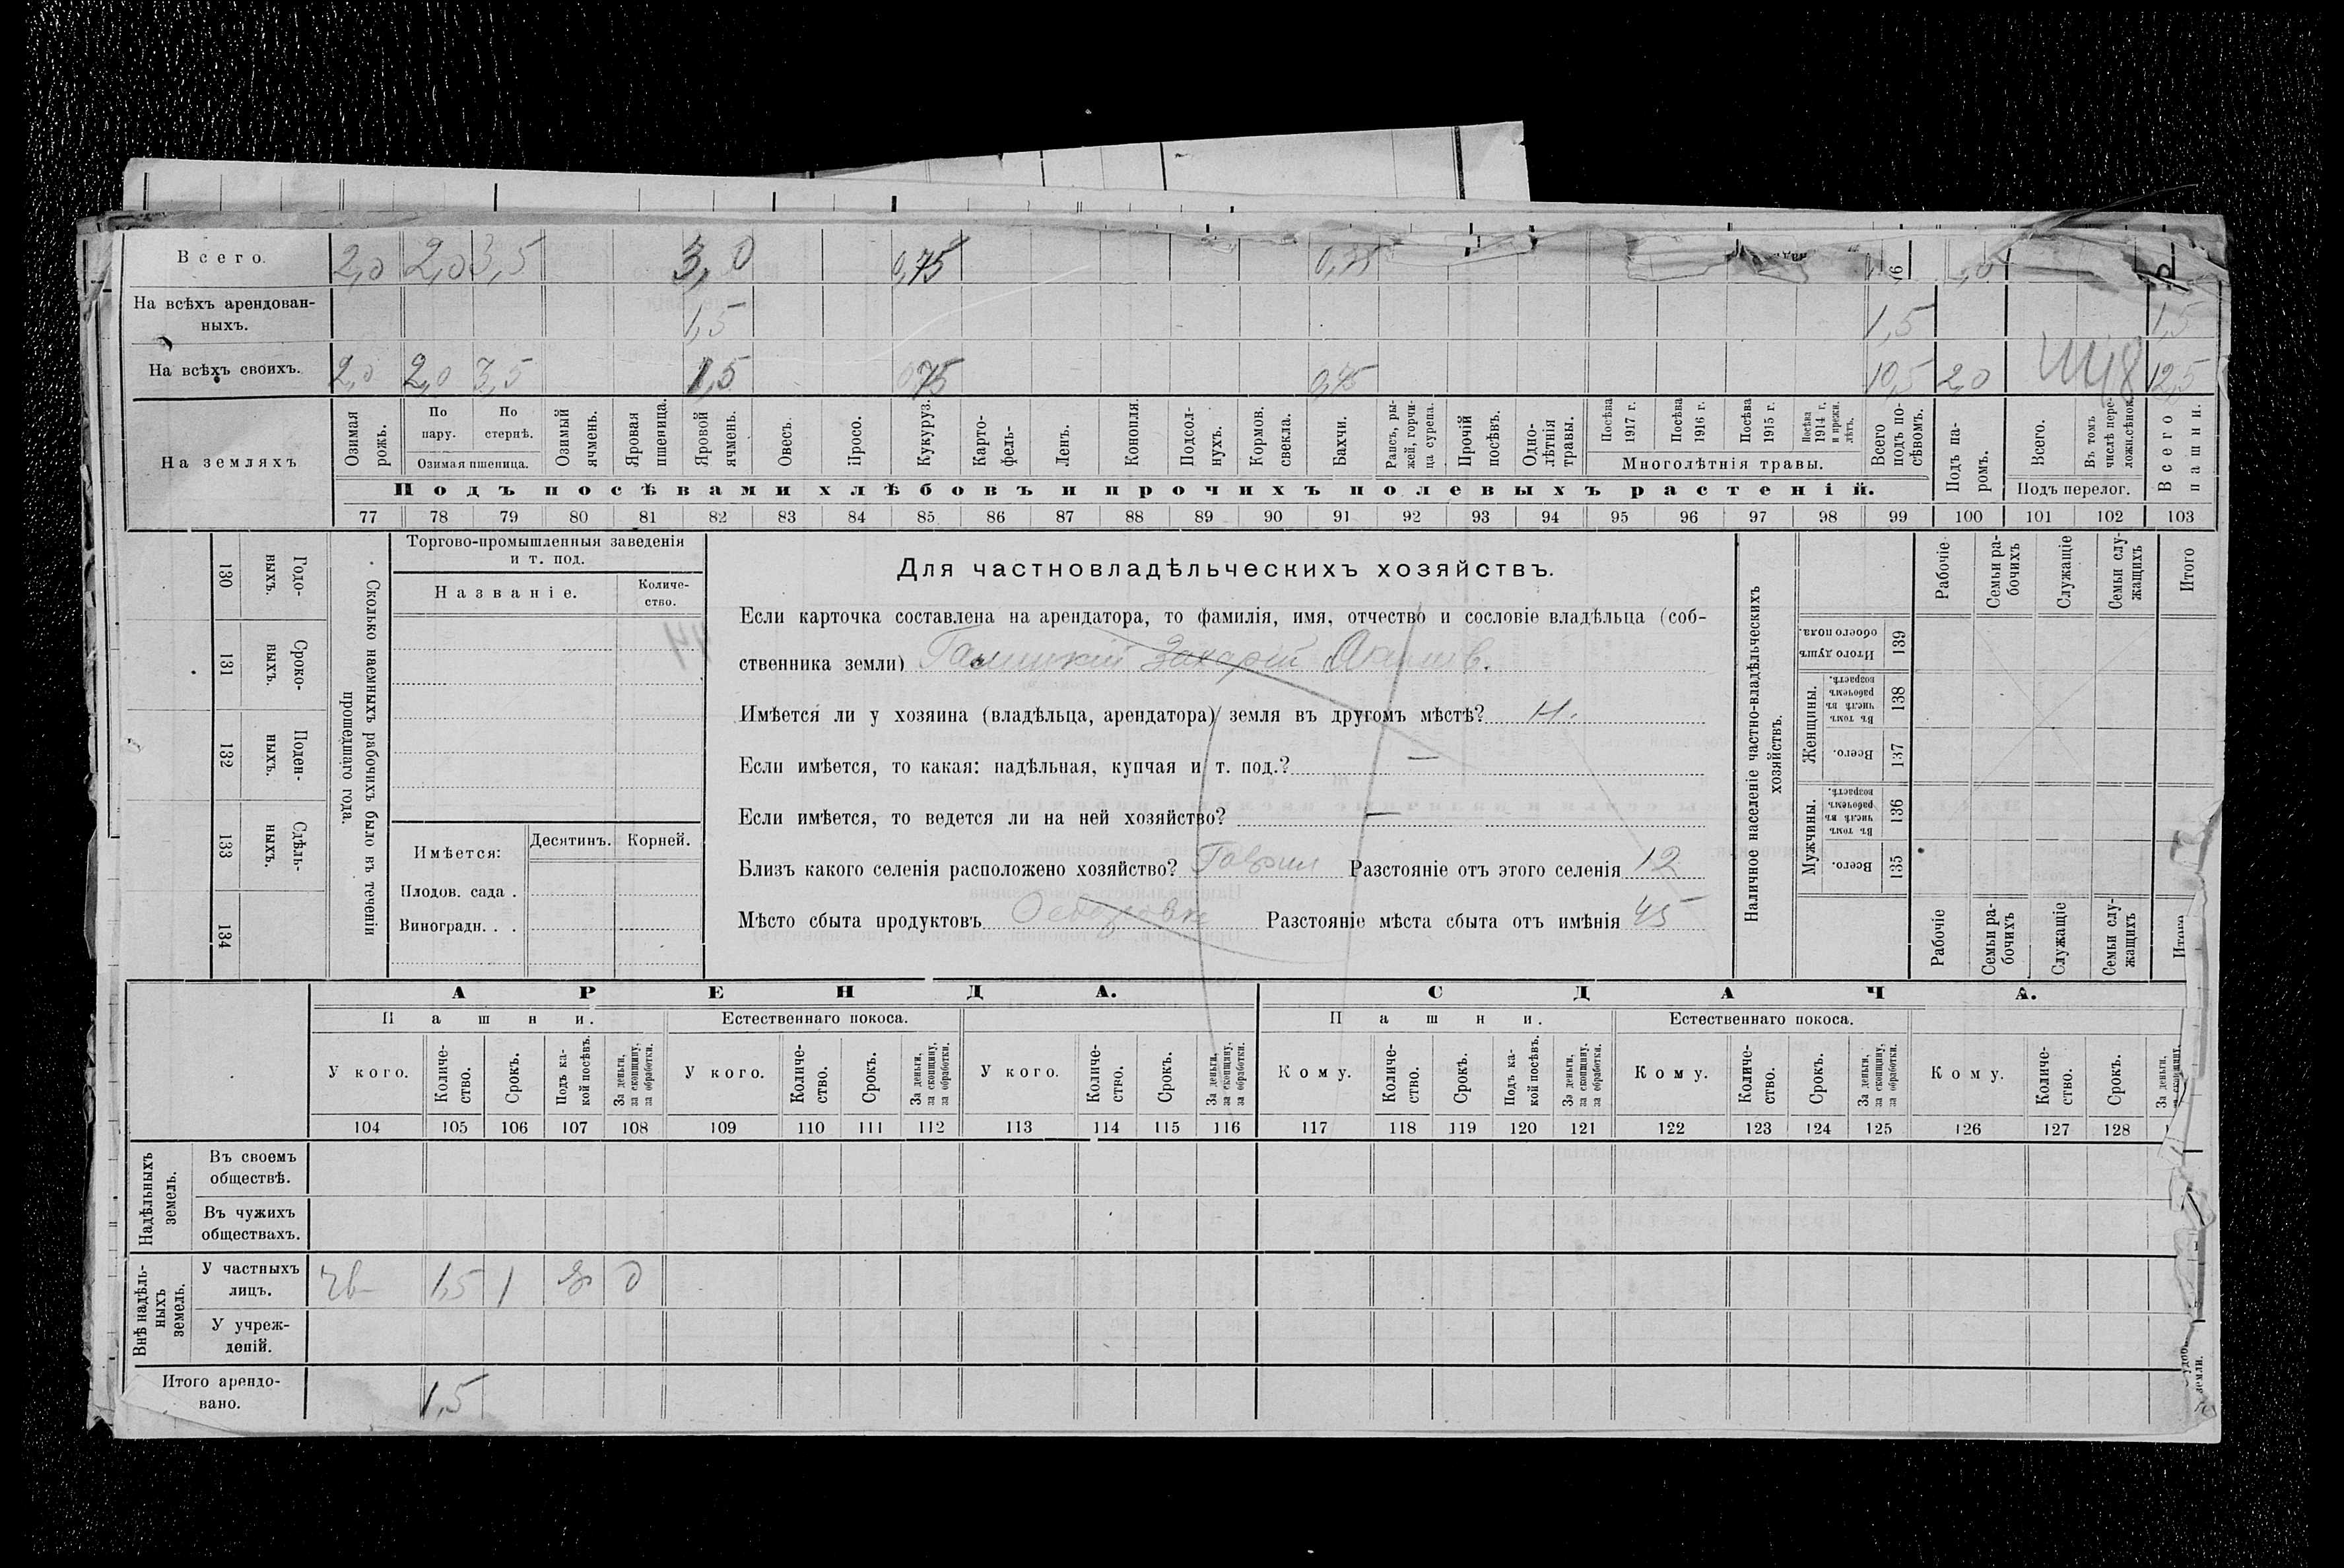 Всего. 2,0 2,0 3,5 3,0 0,75
На всѣхъ арендован-
ныхъ. 1,5 1,5 1,5
На всѣхъ своихъ. 2,0 2,0 3,5 1,5 0,75 10,5 2,0 12,5
На земляхъ
Озимая рожь.
По пару.
По стернѣ.
Озимая пшеница.
Озимый ячмень.
Яровая пшеница.
Яровой ячмень.
Овесъ.
Просо.
Кукуруз.
Карто-
фель-
Ленъ.
Конопля.
Подсол-
нухъ.
Кормов. свекла.
Бахчи.
Рапсъ, ры-
жей, горчи-
ца сурепа.
Прочій посѣвъ.
Одно-
лѣтнія травы.
Посѣва 1917 г.
Посѣва 1916 г.
Посѣва 1915 г.
Посѣва 1914 г. и прежн. лѣтъ.
Многолѣтнія травы.
Всего подъ по-
сѣвомъ.
Подъ па-
ромъ.
Всего.
Въ томъ числѣ пере-
лож. сѣнок.
Подъ перелог.
Всего пашни.
Подъ посѣвами хлѣбовъ и прочихъ полевыхъ растеній.
77 78 79 80 81 82 83 84 85 86 87 88 89 90 91 92 93 94 95 96 97 98 99 100 101 102 103
Годо-
выхъ.
130
Сроко-
выхъ.
131
Поден-
ныхъ.
132
Сдѣль-
ныхъ.
133
134
Сколько наемныхъ рабочихъ было въ теченіи
прошедшаго года.
Торгово-промышленныя заведенія
и т. под.
Названіе.
Количе-
ство.
Имѣется:
Десятинъ.
Корней.
Плодов. сада .
Виноградн. . .
Для частновладѣльческихъ хозяйствъ.
Если карточка составлена на арендатора, то фамилія, имя, отчество и сословіе владѣльца (соб-
ственника земли) Захарій
Имѣется ли у хозяина (владѣльца, арендатора) земля въ другомъ мѣстѣ? Н.
Если имѣется, то какая: надѣльная, купчая и т. под.? —
Если имѣется, то ведется ли на ней хозяйство? —
Близъ какого селенія расположено хозяйство? Разстояніе отъ этого селенія 12
Мѣсто сбыта продуктовъ Разстояніе мѣста сбыта отъ имѣнія 45
Наличное населеніе частно-владѣльческихъ
хозяйствъ.
Итого душъ обоего пола. 139
Женщины.
Въ томъ числѣ въ рабочемъ возрастѣ. 138
Всего. 137
Мужчины.
Въ томъ числѣ въ рабочемъ возрастѣ. 136
Всего. 135
Рабочіе
Семьи ра-
бочихъ
Служащіе
Семьи слу-
жащихъ
Итого
Рабочіе
Семьи ра-
бочихъ
Служащіе
Семьи слу-
жащихъ
АРЕНДА. СДАЧА.
Пашни. Естественнаго покоса. Пашни. Естественнаго покоса.
У кого. Количе-
ство. Срокъ. Подъ ка-
кой посѣвъ. За деньги, за скопщину, за обработки.
У кого. Количе-
ство. Срокъ. За деньги, за скопщину, за обработки.
У кого. Количе-
ство. Срокъ. За деньги, за скопщину, за обработки.
Кому. Количе-
ство. Срокъ. Подъ ка-
кой посѣвъ. За деньги, за скопщину, за обработки.
Кому. Количе-
ство. Срокъ. За деньги, за скопщину, за обработки.
Кому. Количе-
ство. Срокъ. За деньги,
104 105 106 107 108 109 110 111 112 113 114 115 116 117 118 119 120 121 122 123 124 125 126 127 128
Надѣльныхъ земель.
Въ своемъ
обществѣ.
Въ чужихъ
обществахъ.
Внѣ надѣль-
ныхъ земель.
У частныхъ
лицъ. 1,5 1 д
У учреж-
деній.
Итого арендо-
вано. 1,5